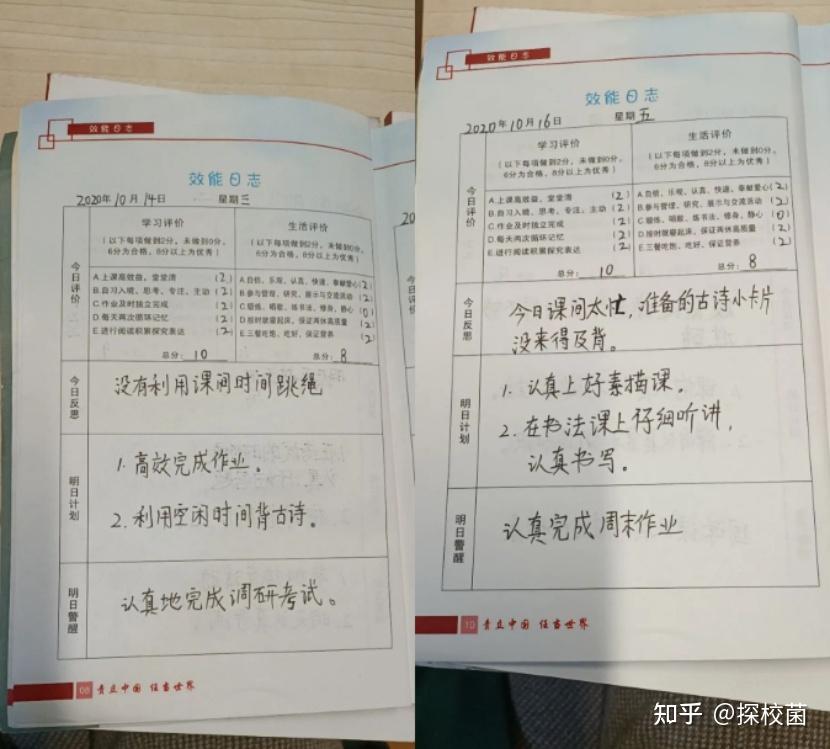 效能日志
效能日志
2020年10月14日 星期三
学习评价
(以下每项做到2分,未做到0分,
6分为合格,8分以上为优秀)
生活评价
(以下每项做到2分,未做到0分,
6分为合格,8分以上为优秀)
今日评价
A.上课高效益,堂堂清 (2)
B.自习入境,思考、专注、主动 (2)
C.作业及时独立完成 (2)
D.每天两次循环记忆 (2)
E.进行阅读积累探究表达 (2)
总分: 10
A.自信、乐观、认真、快速、奉献爱心(2)
B.参与管理、研究、展示与交流活动 (2)
C.锻炼、唱歌、练书法、修身、静心 (0)
D.按时就寝起床,保证两休高质量 (2)
E.三餐吃饱、吃好,保证营养 (2)
总分: 8
今日反思
没有利用课间时间跳绳
明日计划
1.高效完成作业。
2.利用空闲时间背古诗。
明日警醒
认真地完成调研考试。
08 责立中国 任当世界
效能日志
效能日志
2020年10月16日 星期五
学习评价
(以下每项做到2分,未做到0分,
6分为合格,8分以上为优秀)
生活评价
(以下每项做到2分,未做到0分,
6分为合格,8分以上为优秀)
今日评价
A.上课高效益,堂堂清 (2)
B.自习入境,思考、专注、主动 (2)
C.作业及时独立完成 (2)
D.每天两次循环记忆 (2)
E.进行阅读积累探究表达 (2)
总分: 10
A.自信、乐观、认真、快速、奉献爱心(2)
B.参与管理、研究、展示与交流活动 (2)
C.锻炼、唱歌、练书法、修身、静心 (0)
D.按时就寝起床,保证两休高质量 (2)
E.三餐吃饱、吃好,保证营养 (2)
总分: 8
今日反思
今日课间太忙,准备的古诗小卡片
没来得及背。
明日计划
1.认真上好素描课。
2.在书法课上仔细听讲,
认真书写。
明日警醒
认真完成周末作业
10 责立中国 任当世界
知乎 @探校菌